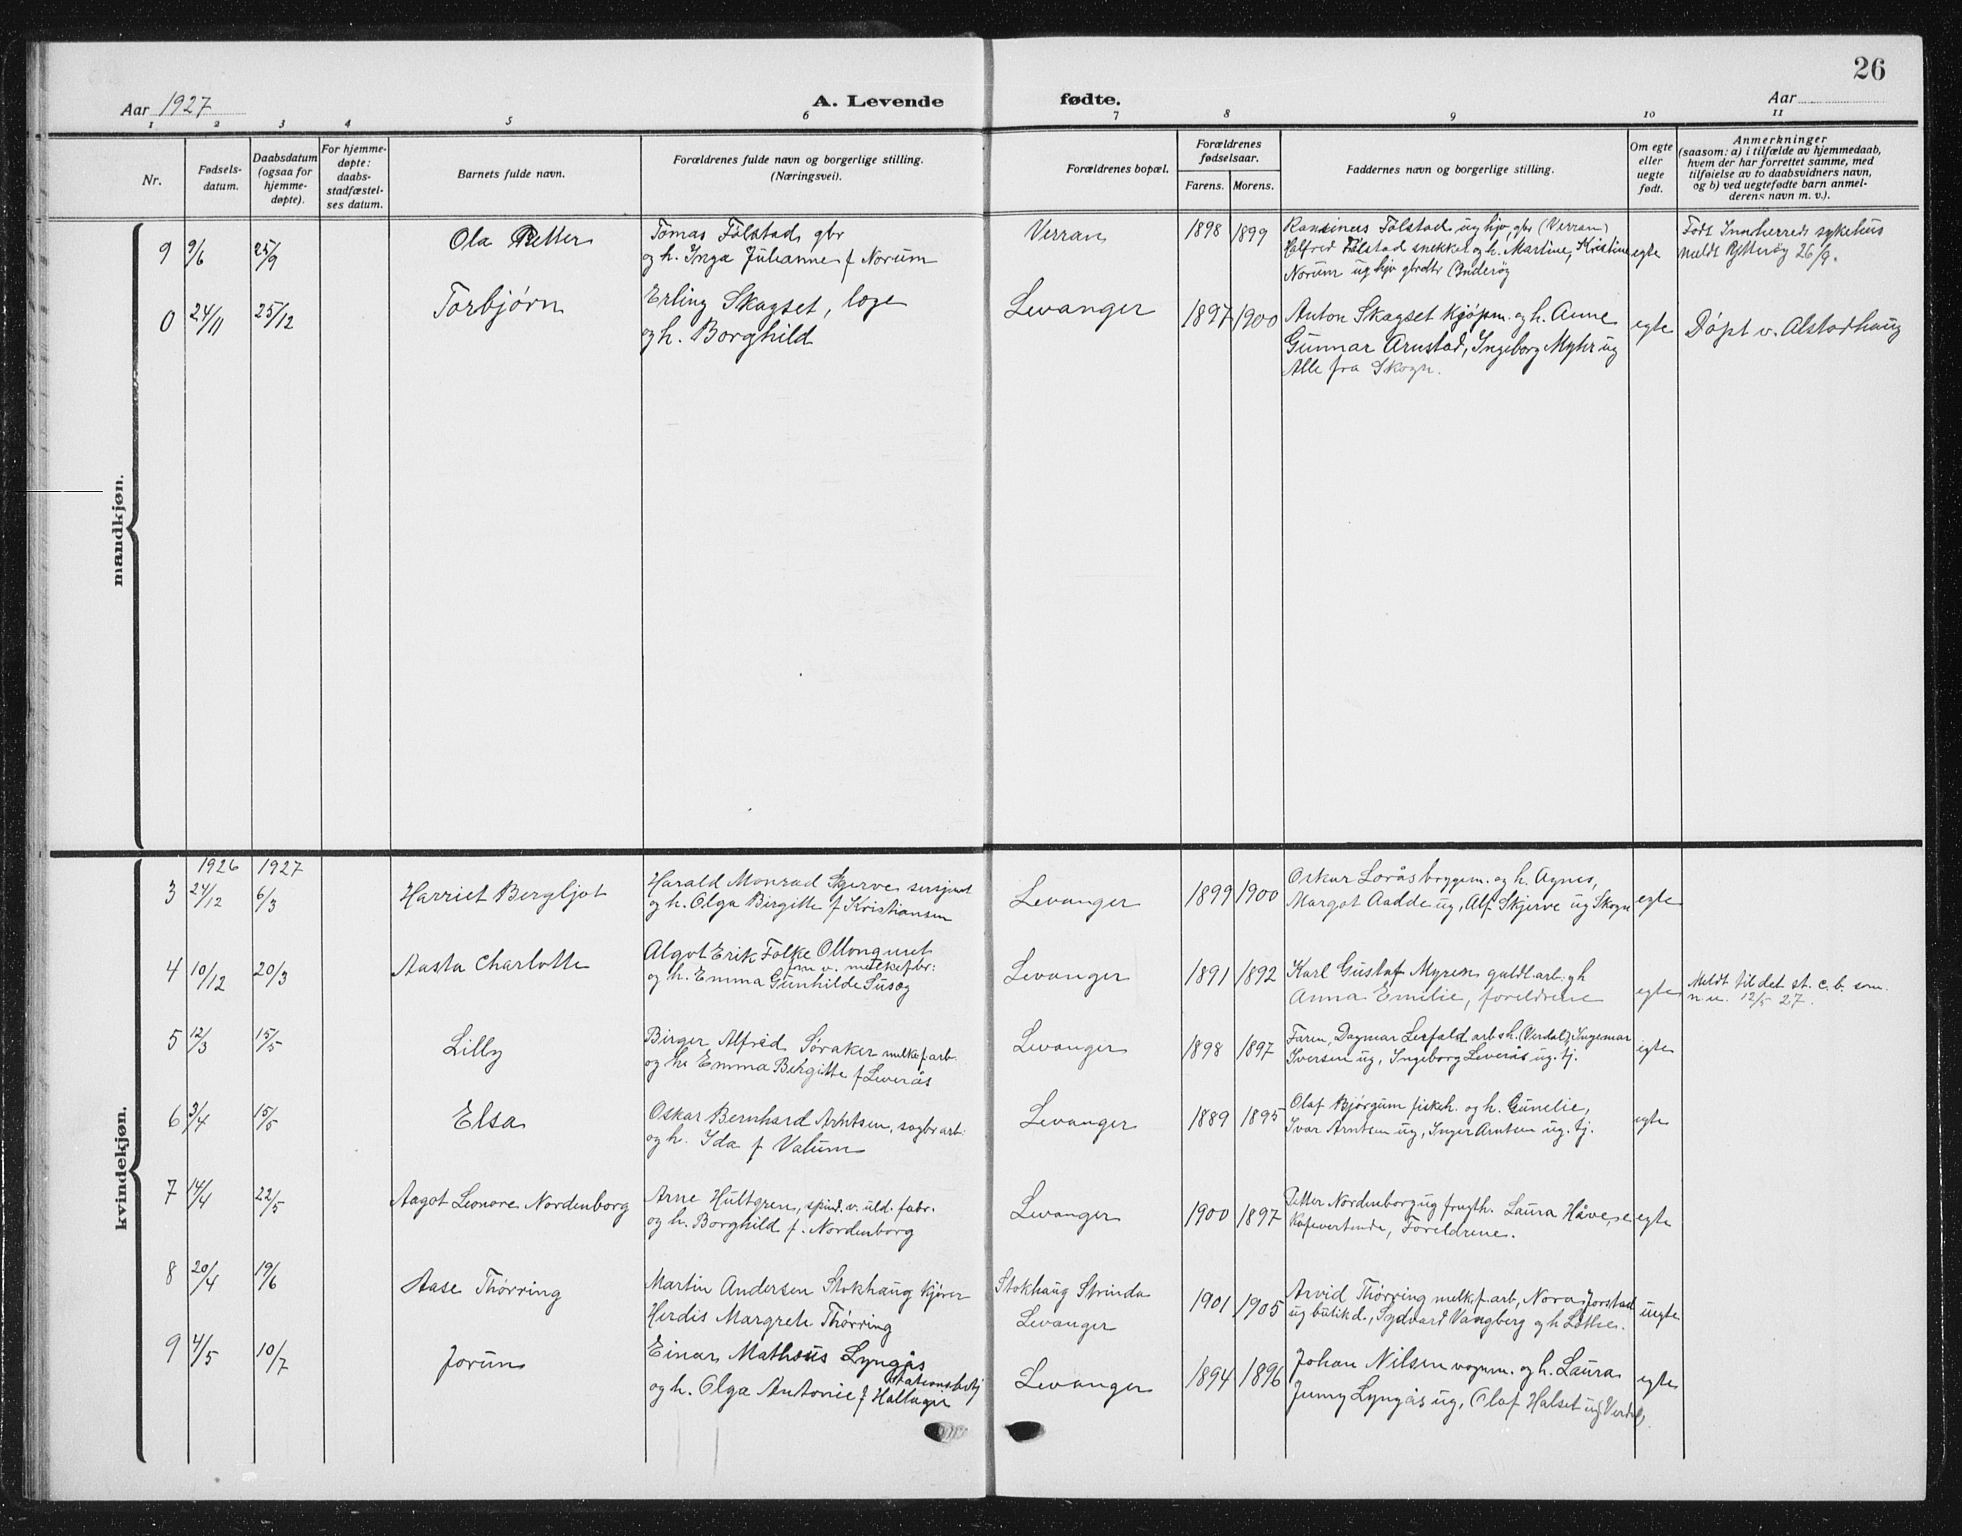 26
Aar 1927
A. Levende
fødte.
Aar
1 2 3 4 5 6 7 8 9 10 11
Nr.
Fødsels-
datum.
Daabsdatum
(ogsaa for
hjemme-
døpte).
For hjemme-
døpte:
daabs-
stadfæstel-
ses datum.
Barnets fulde navn.
Forældrenes fulde navn og borgerlige stilling.
(Næringsvei).
Forældrenes bopæl.
Forældrenes
fødselsaar.
Farens. Morens.
Faddernes navn og borgerlige stilling.
Om egte
eller
uegte
født.
Anmerkninger
(saasom: a) i tilfælde av hjemmedaab,
hvem der har forrettet samme, med
tilføielse av to daabsvidners navn,
og b) ved uegtefødte barn anmel-
derens navn m. v.).
mandkjøn.
9 9/6 25/9 Ola Petter
Tomas Følstad gbr
og h. Inga Julianne f Norum
Verran 1898 1899
Følstad ug hjv. gbr (Verran)
Halfred Følstad snekker og h. Martine, Kristine
Norum ug hjv gbrdtr Inderøy
egte
Født Innherred sykehus
meldt Ytterøy 26/9.
0 24/11 25/12 Torbjørn
Erling Skagset, læge
og h. Borghild
Levanger 1897 1900
Anton Skagset kjøpm. og h. Anne
Gunnar Arnstad, Ingeborg Myhr ug
Alle fra Skogn.
egte
Døpt v. Alstadhaug
kvindekjøn.
1926 1927
3 24/12 6/3 Harriet Bergljot
Harald Monrad Skjerve sersjant
og h. Olga Birgitte f Kristiansen
Levanger 1899 1900
Oskar Lorås bryggem. og h. Agnes,
Margot Aadde ug, Alf Skjerve ug Skogn
egte
4 10/12 20/3 Aasta Charlotte
Algot Erik Folke
frm v. melkefbr:
og h. Emma Gunhilde
Levanger 1891 1892
Karl Gustaf Myren guldl.arb. g h
Anna Emilie, foreldrene
egte
Meldt til det st. c. b. som
n. u. 12/5 27.
5 12/3 15/5 Lilly
Birger Alfred Søraker melkef.arb
og h. Emma Birgitte f Leverås
Levanger 1898 1897
Faren, Dagmar Lesfald arb s h. (Verdal), Ingemar
Iversen ug, Ingeborg Leverås ug. tj.
egte
6 3/4 15/5 Elsa
Oskar Bernhard Arntsen, sagbr arb.
og h. Ida f Valum
Levanger 1889 1895
Olaf Bjørgum fiskeh. og h. Gunelie,
Ivar Arntsen ug, Inger Arntsen ug. tj.
egte
7 14/4 22/5 Aagot Leonore Nordenborg
Arne Hultgren, spind. v. uld. fabr.
og h. Borghild f. Nordenborg
Levanger 1900 1897
Petter Nordenborg ug frugth. Laura Håve, e
Kafevertinde, Foreldrene.
egte
8 20/4 19/6 Aase Thørring
Martin Andersen Stokhaug kjører
Herdis Margrete Thørring
Stokhaug Strinda
Levanger
1901 1905
Arvid Thørring melkef arb, Nora Jorstad
ug butikd., Sydvard Vangberg og h Lothe.
uegte
9 4/5 10/7 Jorun
Einar Mathæus Lyngås
stationsbetj
og h. Olga Antonie f Hallager
Levanger 1894 1896
Johan Nilsen vognm. og h. Laura
Jenny Lyngås ug, Olaf Halset ug Verdal.
egte